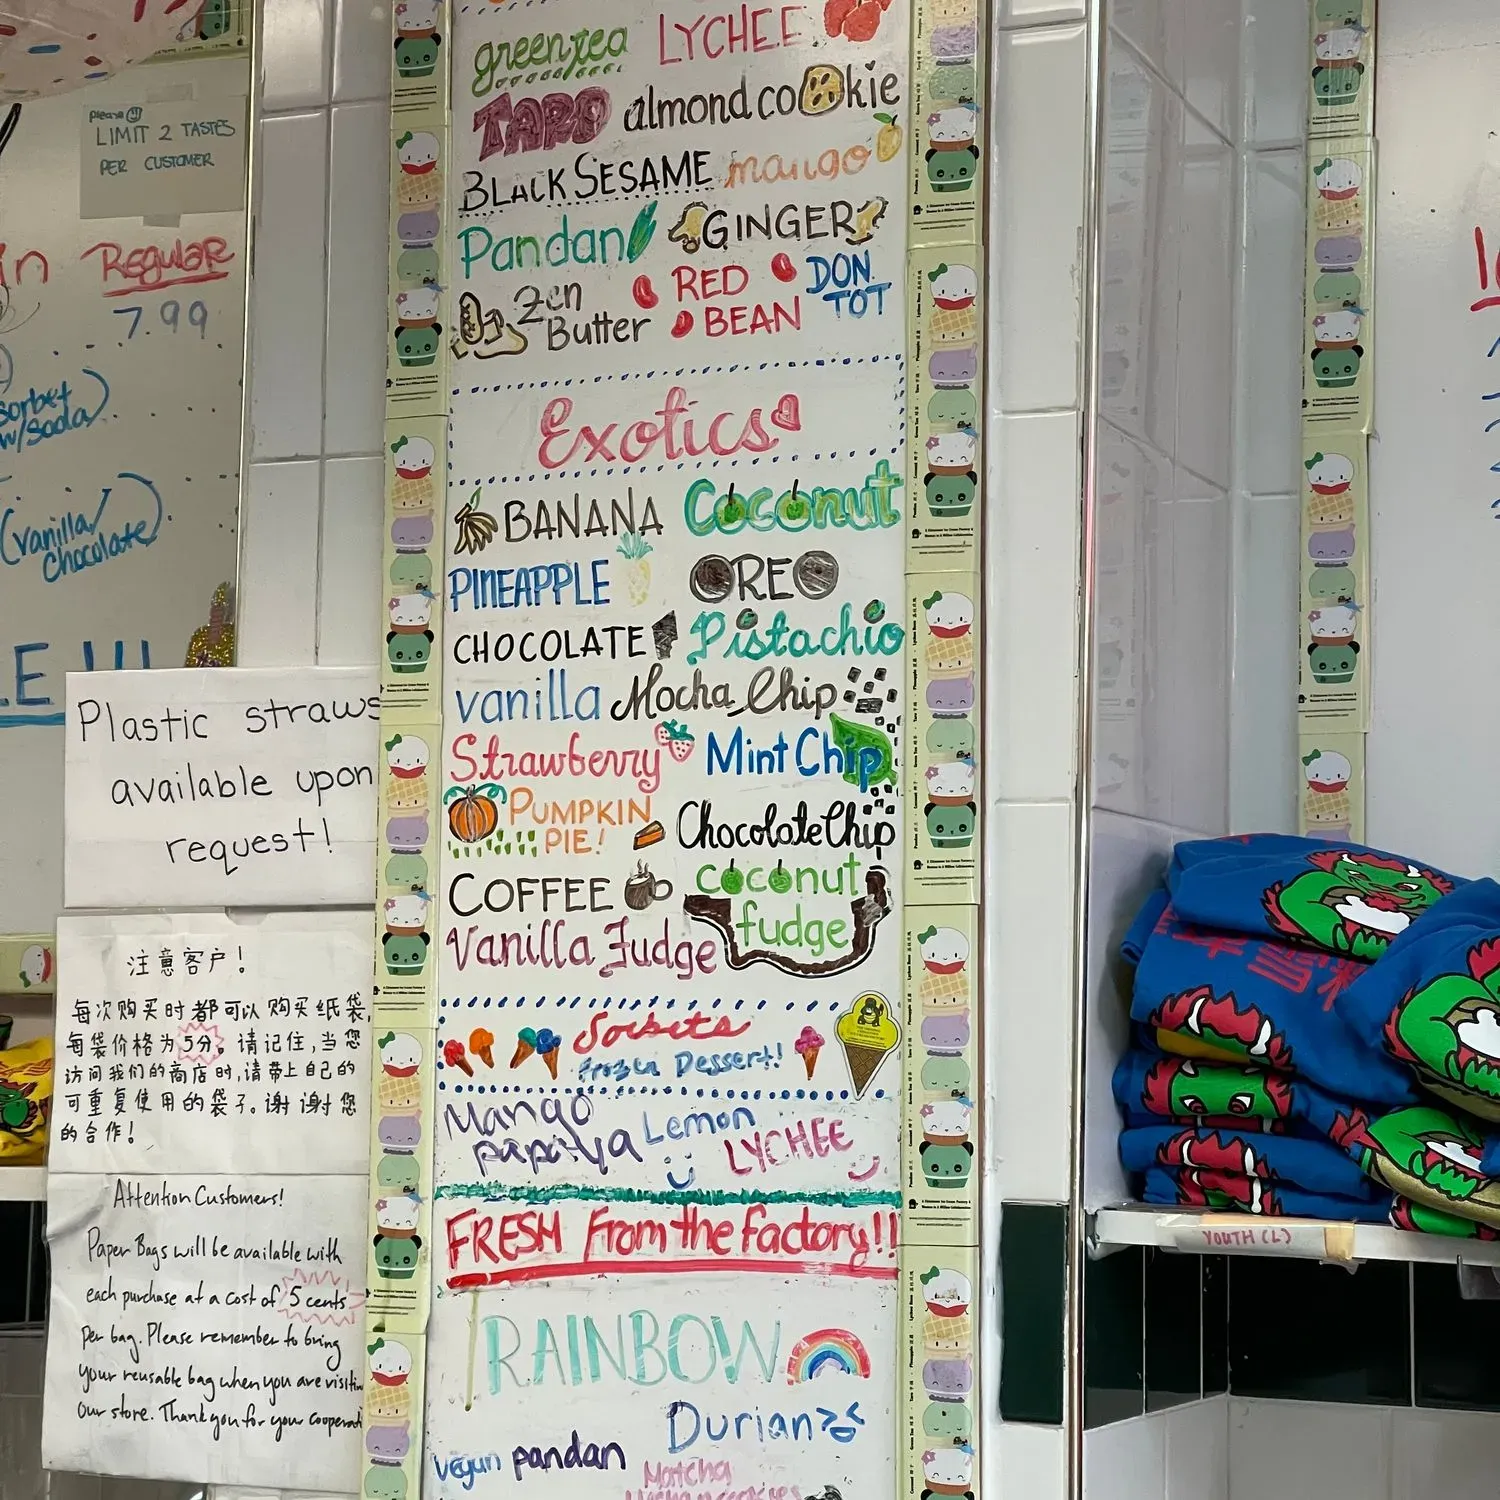 please
LIMIT 2 TASTES
PER CUSTOMER
Regular
7.99
sorbet
w/soda
(vanilla/
chocolate)
Plastic straws
available upon
request!
注意客户!
每次购买时都可以购买纸袋,
每袋价格为5分。请记住,当您
访问我们的商店时,请带上自己的
可重复使用的袋子。谢谢您
的合作!
Attention Customers!
Paper Bags will be available with
each purchase at a cost of 5 cents
per bag. Please remember to bring
your reusable bag when you are visitin
our store. Thank you for your cooperati
green tea LYCHEE
TARO almond cookie
BLACK SESAME mango
Pandan GINGER
Zen Butter RED BEAN DON TOT
Exotics
BANANA Coconut
PINEAPPLE OREO
CHOCOLATE Pistachio
vanilla Mocha Chip
Strawberry Mint Chip
PUMPKIN PIE! Chocolate Chip
COFFEE coconut fudge
Vanilla Fudge
Sorbets
Frozen Dessert!
Mango papaya Lemon LYCHEE
FRESH From the Factory!!
RAINBOW
Durian
vegan pandan
Matcha
YOUTH (L)